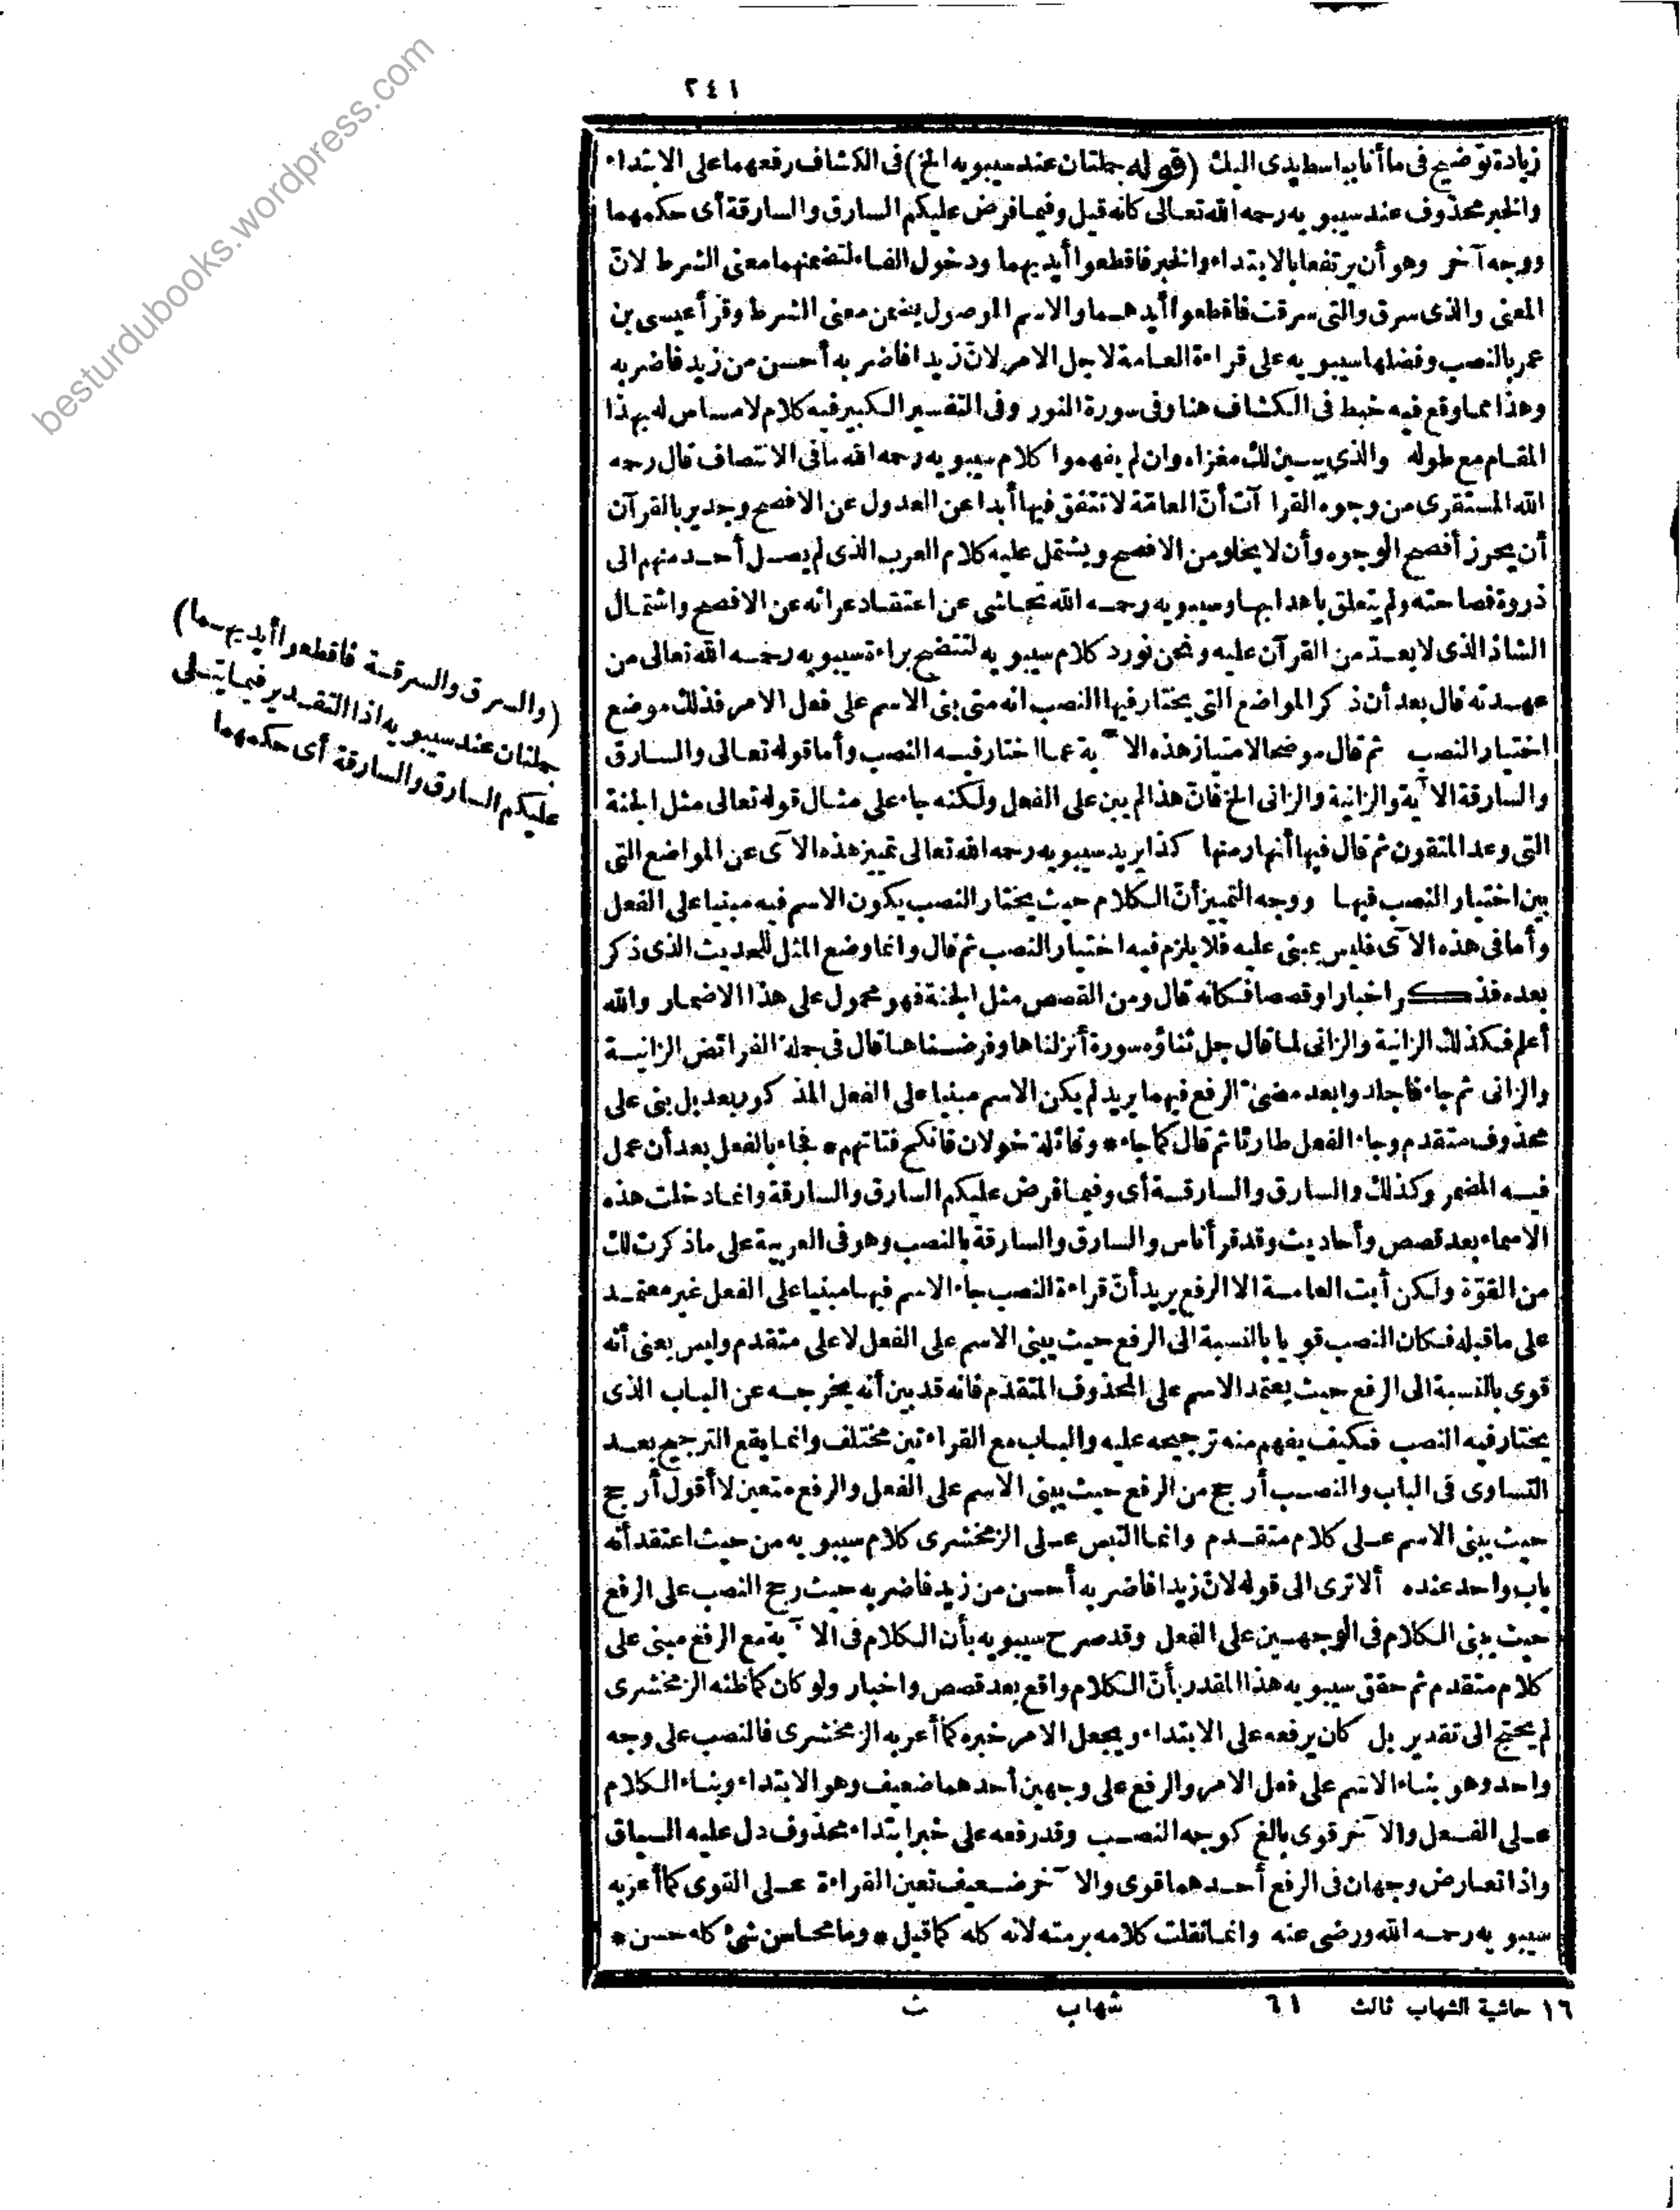 ٢٤١
زيادة توضيح فى ما أنا بباسط يدى اليك (قوله جملتان عند سيبويه الخ) فى الكشاف رفعهما على الابتداء
والخبر محذوف عند سيبويه رحمه الله تعالى كانه قيل وفيما فرض عليكم السارق والسارقة أى حكمهما
ووجه آخر وهو أن يرتفعا بالابتداء والخبر فاقطعوا أيديهما ودخول الفاء لتضمنهما معنى الشرط لانّ
المعنى والذى سرق والتى سرقت فاقطعوا أيدهما والاسم الموصول يضمن معنى الشرط وقرأ عيسى بن
عمر بالنصب وفضلها سيبويه على قراءة العامة لاجل الامر لانّ زيدا فاضربه أحسن من زيد فاضربه
وهذا مما وقع فيه خبط فى الكشاف هنا وفى سورة النور وفى التفسير الكبير فيه كلام لامساس له بهذا
المقام مع طوله والذى يبين لك مغزاه وان لم يفهموا كلام سيبويه رحمه الله ما فى الانتصاف قال رحمه
الله المستقرى من وجوه القرا آت أنّ العامّة لا تتفق فيها أبدا عن العدول عن الافصح وجدير بالقرآن
أن يحرز أفصح الوجوه وأن لا يخلو من الافصح ويشتمل عليه كلام العرب الذى لم يصل أحد منهم الى
ذروة فصاحته ولم يتعلق باهدابها وسيبويه رحمه الله تحاشى عن اعتقاد عرائه عن الافصح واشتمال
الشاذ الذى لا يعدّ من القرآن عليه ونحن نورد كلام سيبويه لتتضح براءة سيبويه رحمه الله تعالى من
عهدته قال بعد أن ذكر المواضع التى يختار فيها النصب انه متى بنى الاسم على فعل الامر فذلك موضع
اختيار النصب ثم قال موضحا لامتياز هذه الآية عما اختار فيه النصب وأما قوله تعالى والسارق
والسارقة الآية والزانية والزانى الخ فانّ هذا لم يبن على الفعل ولكنه جاء على مثال قوله تعالى مثل الجنة
التى وعد المتقون ثم قال فيها أنهار منها كذا يريد سيبويه رحمه الله تعالى تمييز هذه الآى عن المواضع التى
بين اختيار النصب فيها ووجه التمييز أنّ الكلام حيث يختار النصب يكون الاسم فيه مبنيا على الفعل
وأما فى هذه الآى فليس بمبنى عليه فلا يلزم فيه اختيار النصب ثم قال وانما وضع المثل للحديث الذى ذكر
بعده فذكر اخبارا وقصصا فكانه قال ومن القصص مثل الجنة فهو محمول على هذا الاضمار والله
أعلم فكذلك الزانية والزانى لما قال جل ثناؤه سورة أنزلناها وفرضناها قال فى جملة الفرائض الزانية
والزانى ثم جاء فاجلدوا بعد مضىّ الرفع فيهما يريد لم يكن الاسم مبنيا على الفعل المذكور بعد بل بنى على
محذوف متقدم وجاء الفعل طارئا ثم قال كما جاء * وقائلة خولان فانكح فتاتهم * فجاء بالفعل بعد أن عمل
فيه المضمر وكذلك والسارق والسارقة أى وفيما فرض عليكم السارق والسارقة وانما دخلت هذه
الاسماء بعد قصص وأحاديث وقد قرأ ناس والسارق والسارقة بالنصب وهو فى العربية على ما ذكرت لك
من القوّة ولكن أبت العامة الا الرفع يريد أنّ قراءة النصب جاء الاسم فيها مبنيا على الفعل غير معتمد
على ما قبله فكان النصب قويا بالنسبة الى الرفع حيث يبنى الاسم على الفعل لا على متقدم وليس يعنى أنه
قوى بالنسبة الى الرفع حيث يعتمد الاسم على المحذوف المتقدّم فانه قد بين أنه يخرجه عن الباب الذى
يختار فيه النصب فكيف يفهم منه ترجيحه عليه والباب مع القراءتين مختلف وانما يقع الترجيح بعد
التساوى فى الباب والنصب أرجح من الرفع حيث يبنى الاسم على الفعل والرفع متعين لا أقول أرجح
حيث يبنى الاسم على كلام متقدم وانما التبس على الزمخشرى كلام سيبويه من حيث اعتقد أنه
باب واحد عنده ألا ترى الى قوله لانّ زيدا فاضربه أحسن من زيد فاضربه حيث رجح النصب على الرفع
حيث يبنى الكلام فى الوجهين على الفعل وقد صرح سيبويه بأن الكلام فى الآية مع الرفع مبنى على
كلام متقدم ثم حقق سيبويه هذا المقدر بأنّ الكلام واقع بعد قصص واخبار ولو كان كما ظنه الزمخشرى
لم يحتج الى تقدير بل كان يرفعه على الابتداء ويجعل الامر خبره كما أعربه الزمخشرى فالنصب على وجه
واحد وهو بناء الاسم على فعل الامر والرفع على وجهين أحدهما ضعيف وهو الابتداء وبناء الكلام
على الفعل والآخر قوى بالغ كوجه النصب وقد رفعه على خبر ابتداء محذوف دل عليه السياق
واذا تعارض وجهان فى الرفع أحدهما قوى والآخر ضعيف تعين القراءة على القوى كما أعربه
سيبويه رحمه الله ورضى عنه وانما نقلت كلامه برمته لانه كله كما قيل * وما محاسن شئ كله حسن *
(والسرق والسرقة فاقطعوا أيديهما)
جملتان عند سيبويه اذ التقدير فيما يتلى
عليكم السارق والسارقة أى حكمهما
١٦ حاشية الشهاب ثالث ٦١ شهاب ث
besturdubooks.wordpress.com